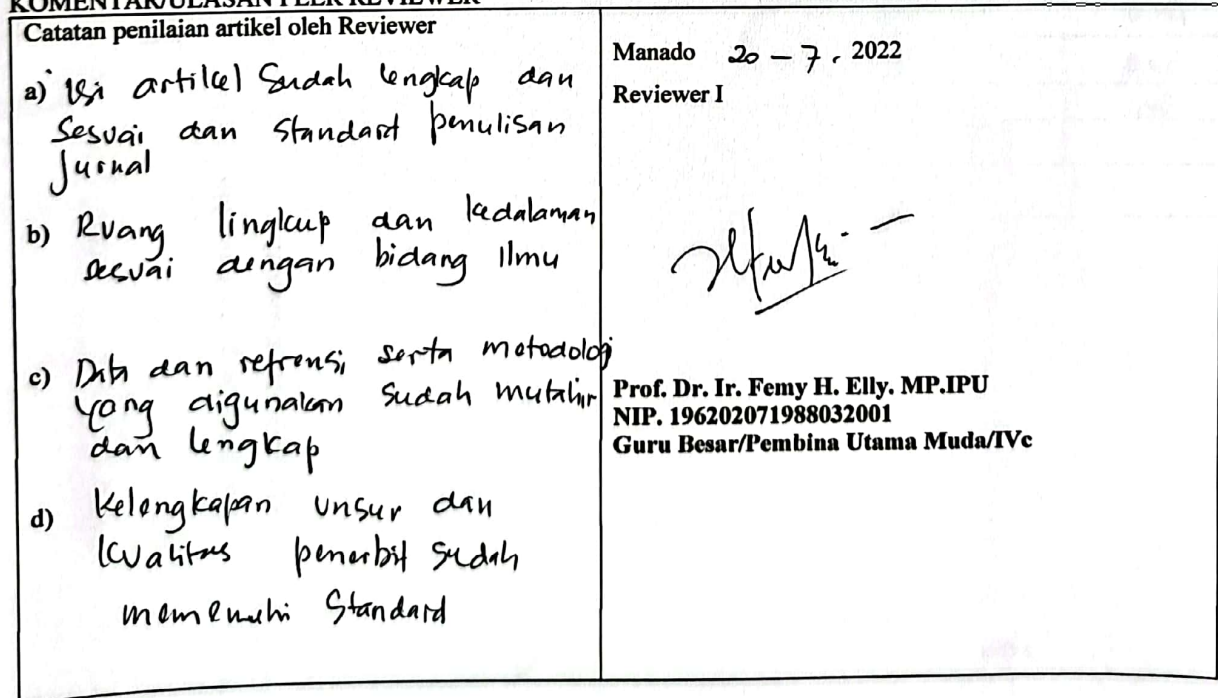 KOMENTAR/ULASAN PEER REVIEWER
Catatan penilaian artikel oleh Reviewer
a) Isi artikel Sudah lengkap dan
Sesuai dan Standard penulisan
Jurnal
b) Ruang lingkup dan kedalaman
sesuai dengan bidang Ilmu
c) Data dan refrensi serta metodologi
yang digunakan Sudah mutahir
dan lengkap
d) Kelengkapan unsur dan
kualitas penerbit sudah
memenuhi Standard
Manado 20 - 7 . 2022
Reviewer I
Prof. Dr. Ir. Femy H. Elly. MP.IPU
NIP. 196202071988032001
Guru Besar/Pembina Utama Muda/IVc